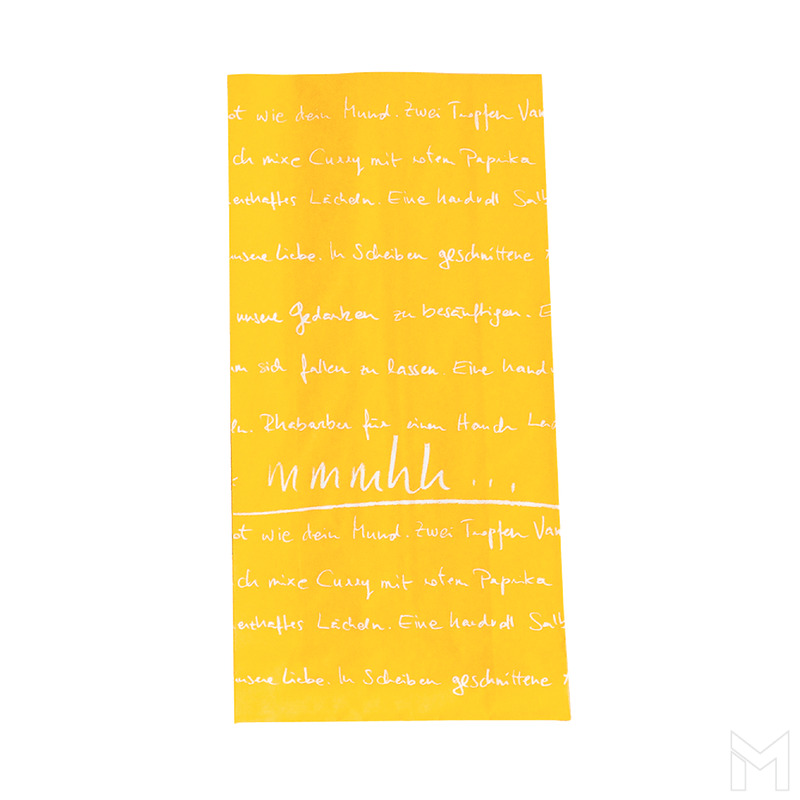 ot wie dein Mund. Zwei Tropfen Van
ch mixe Curry mit rotem Paprika
enhaftes Lächeln. Eine handvoll Salb
unsere Liebe. In Scheiben geschnittene
unsere Gedanken zu besänftigen. E
um sich fallen zu lassen. Eine handv
ln. Rhabarber für einen Hauch Lei
mmmhh...
ot wie dein Mund. Zwei Tropfen Van
ch mixe Curry mit rotem Paprika
enhaftes Lächeln. Eine handvoll Salb
unsere Liebe. In Scheiben geschnittene
M